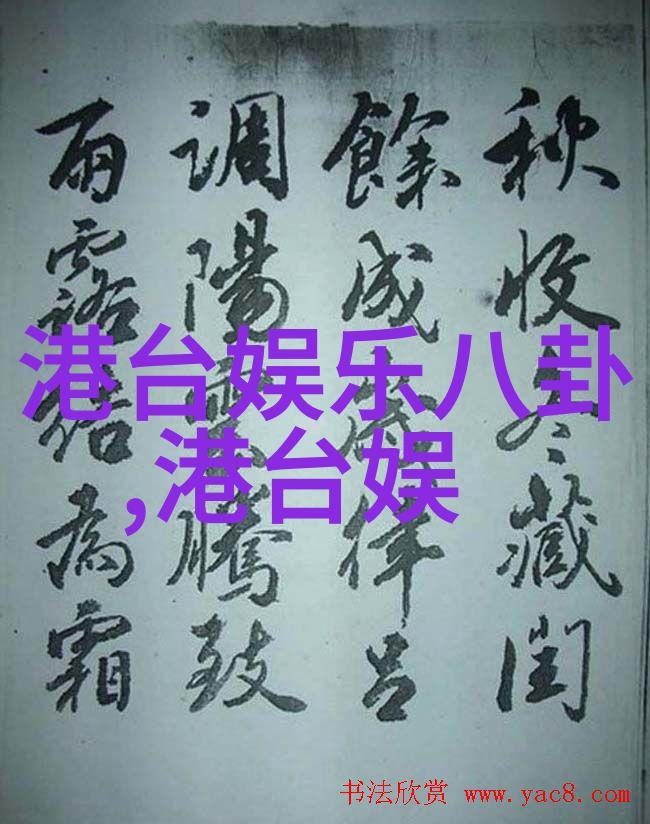 秋收冬藏閏
餘成歲律呂
調陽雲騰致
雨露結為霜
港台娱乐八卦
,港台娱
书法欣赏 www.yac8.com